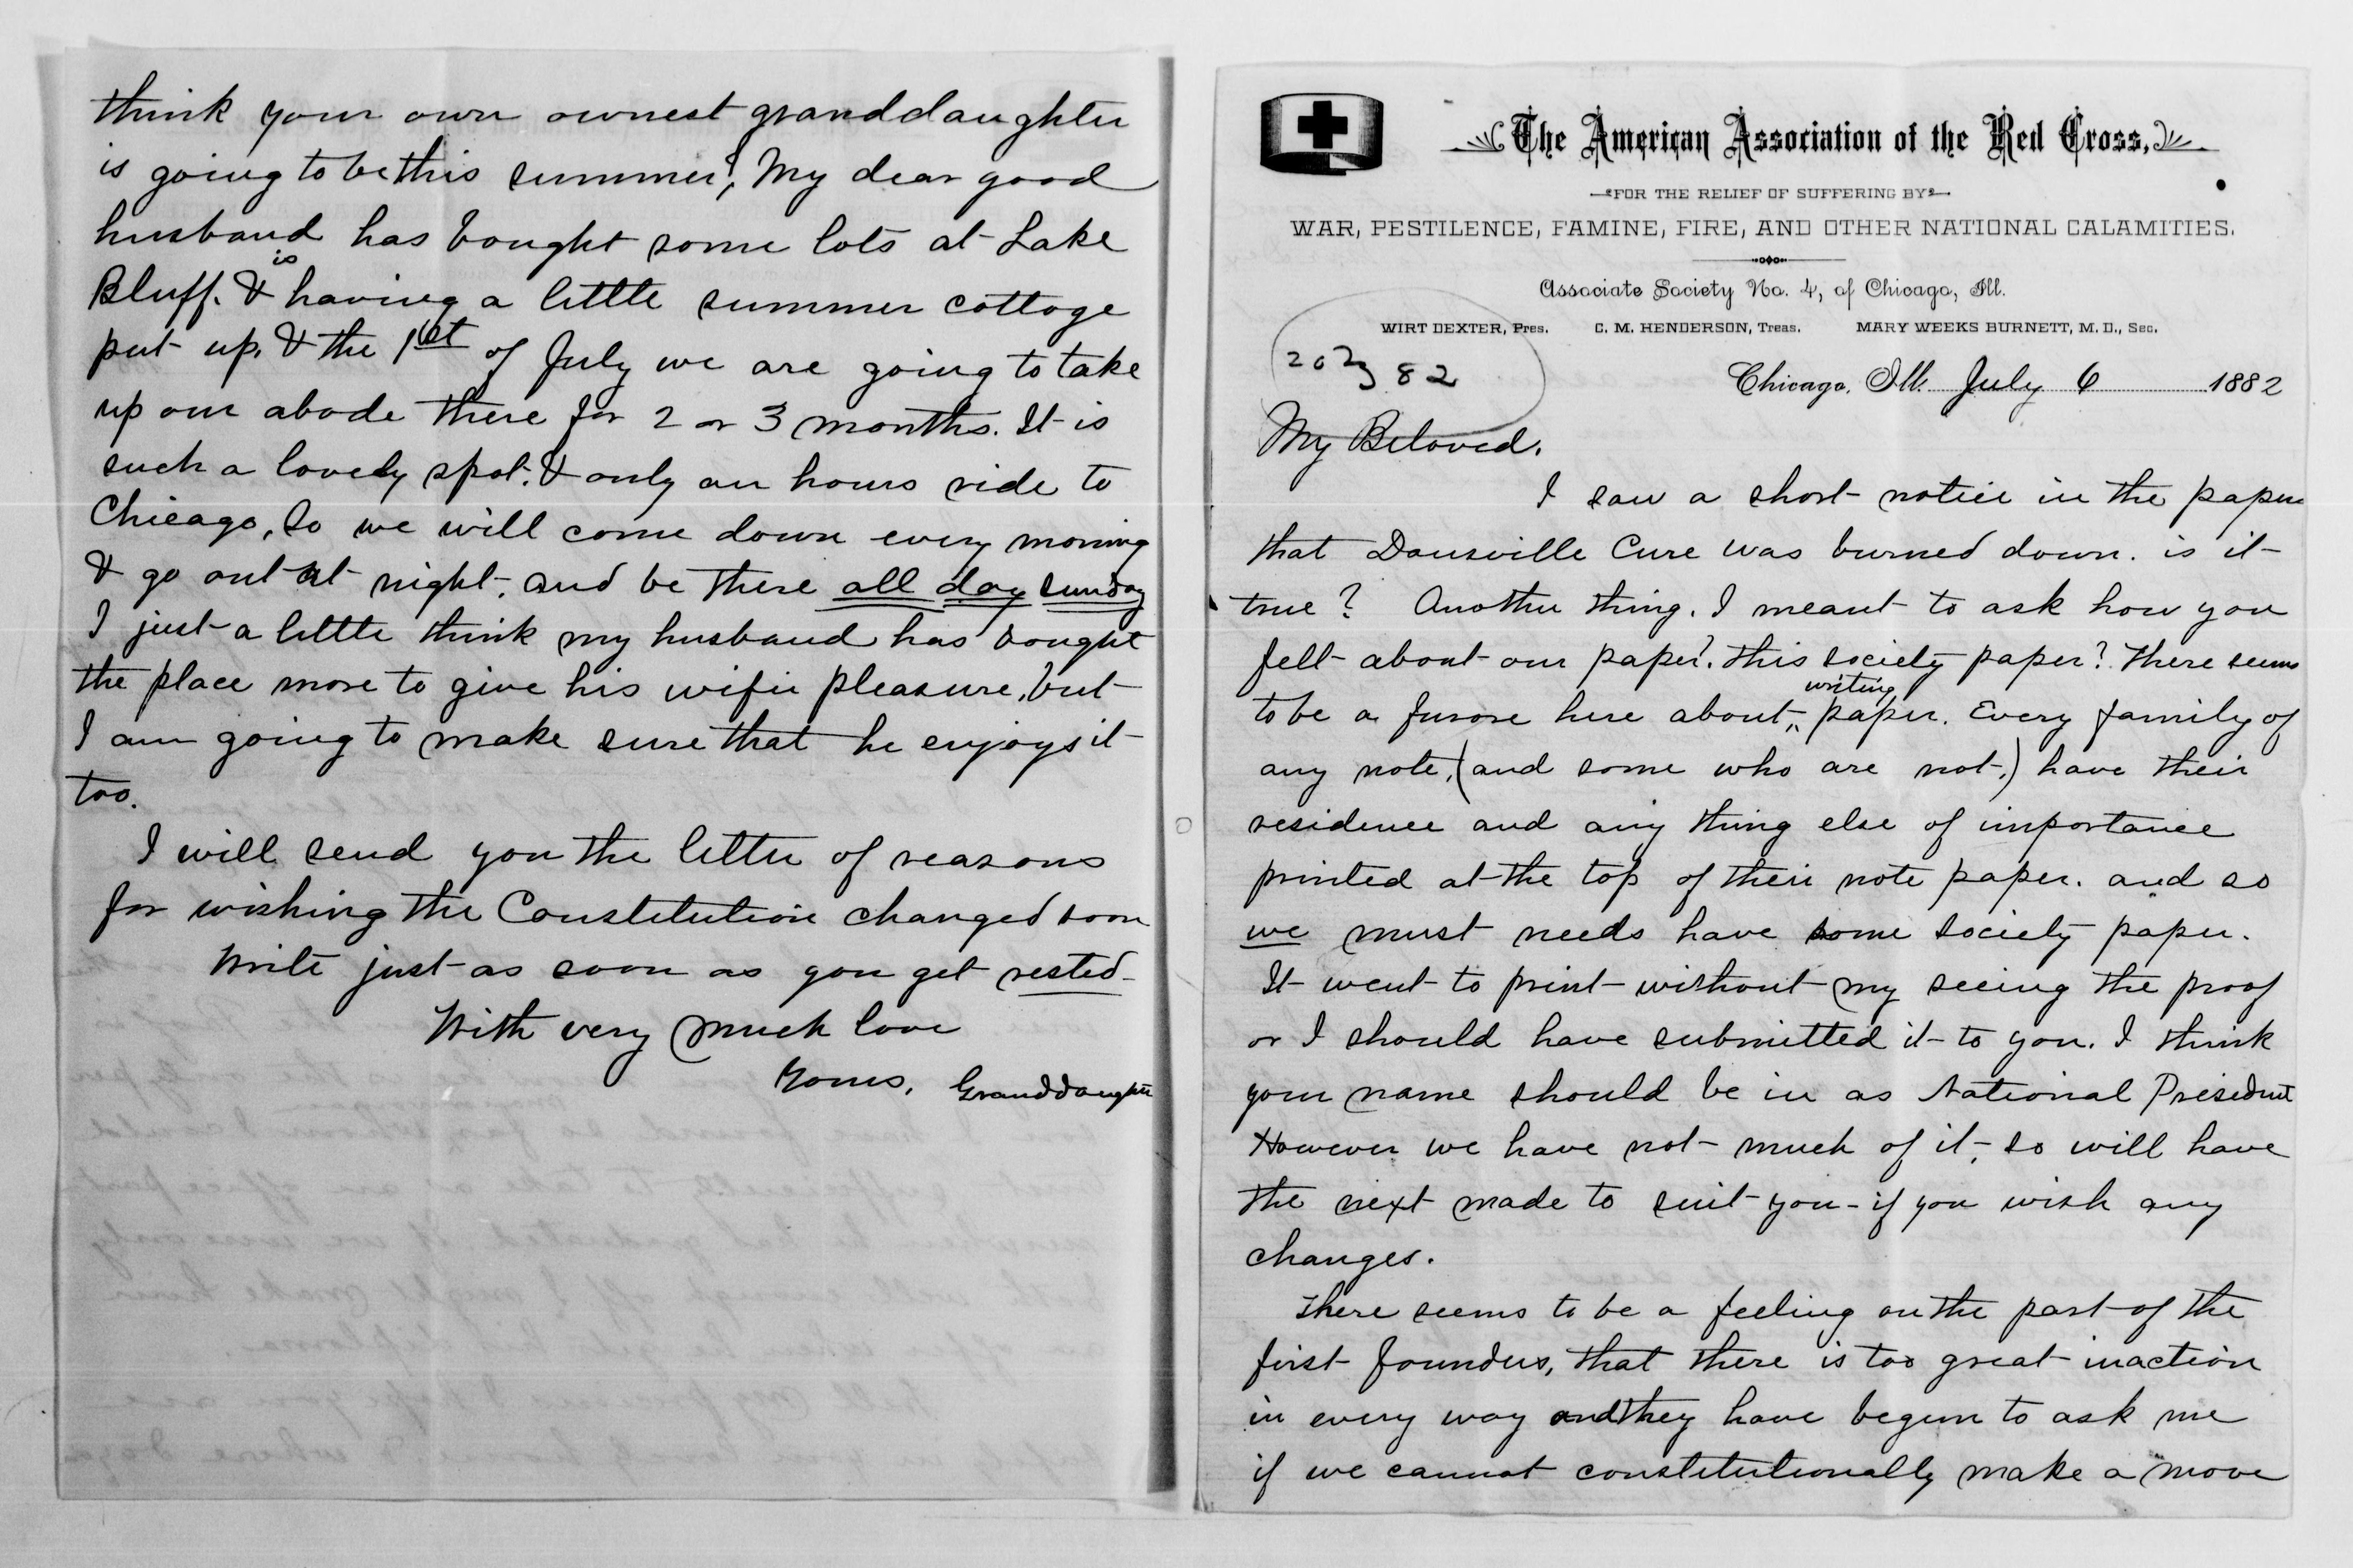 think your own ownest granddaughter
is going to be this summer! My dear good
husband has bought some lots at Lake
Bluff. & is having a little summer cottage
put up. & the 1st of July we are going to take
up our abode there for 2 or 3 months. It is
such a lovely spot. & only an hours ride to
Chicago, So we will come down every morning
& go out at night. and be there all day Sunday
I just a little think my husband has bought
the place more to give his wifie pleasure, but
I am going to make sure that he enjoys it
too.
I will send you the letter of reasons
for wishing the Constitution changed soon
Write just as soon as you get rested
With very much love
Yours, Granddaughter
The American Association of the Red Cross,
FOR THE RELIEF OF SUFFERING BY
WAR, PESTILENCE, FAMINE, FIRE, AND OTHER NATIONAL CALAMITIES.
Associate Society No. 4, of Chicago, Ill.
WIRT DEXTER, Pres. C. M. HENDERSON, Treas. MARY WEEKS BURNETT, M. D., Sec.
82
Chicago, Ill. July 6 1882
My Beloved.
I saw a short notice in the paper
that Dansville Cure was burned down. is it
true? Another thing. I meant to ask how you
felt about our paper? this society paper? There seems
to be a furore here about writing paper. Every family of
any note, (and some who are not,) have their
residence and any thing else of importance
printed at the top of their note paper. and so
we must needs have some society paper.
It went to print without my seeing the proof
or I should have submitted it to you. I think
your name should be in as National President
However we have not much of it, so will have
the next made to suit you - if you wish any
changes.
There seems to be a feeling on the part of the
first founders, that there is too great inaction
in every way and they have begun to ask me
if we cannot constitutionally make a move